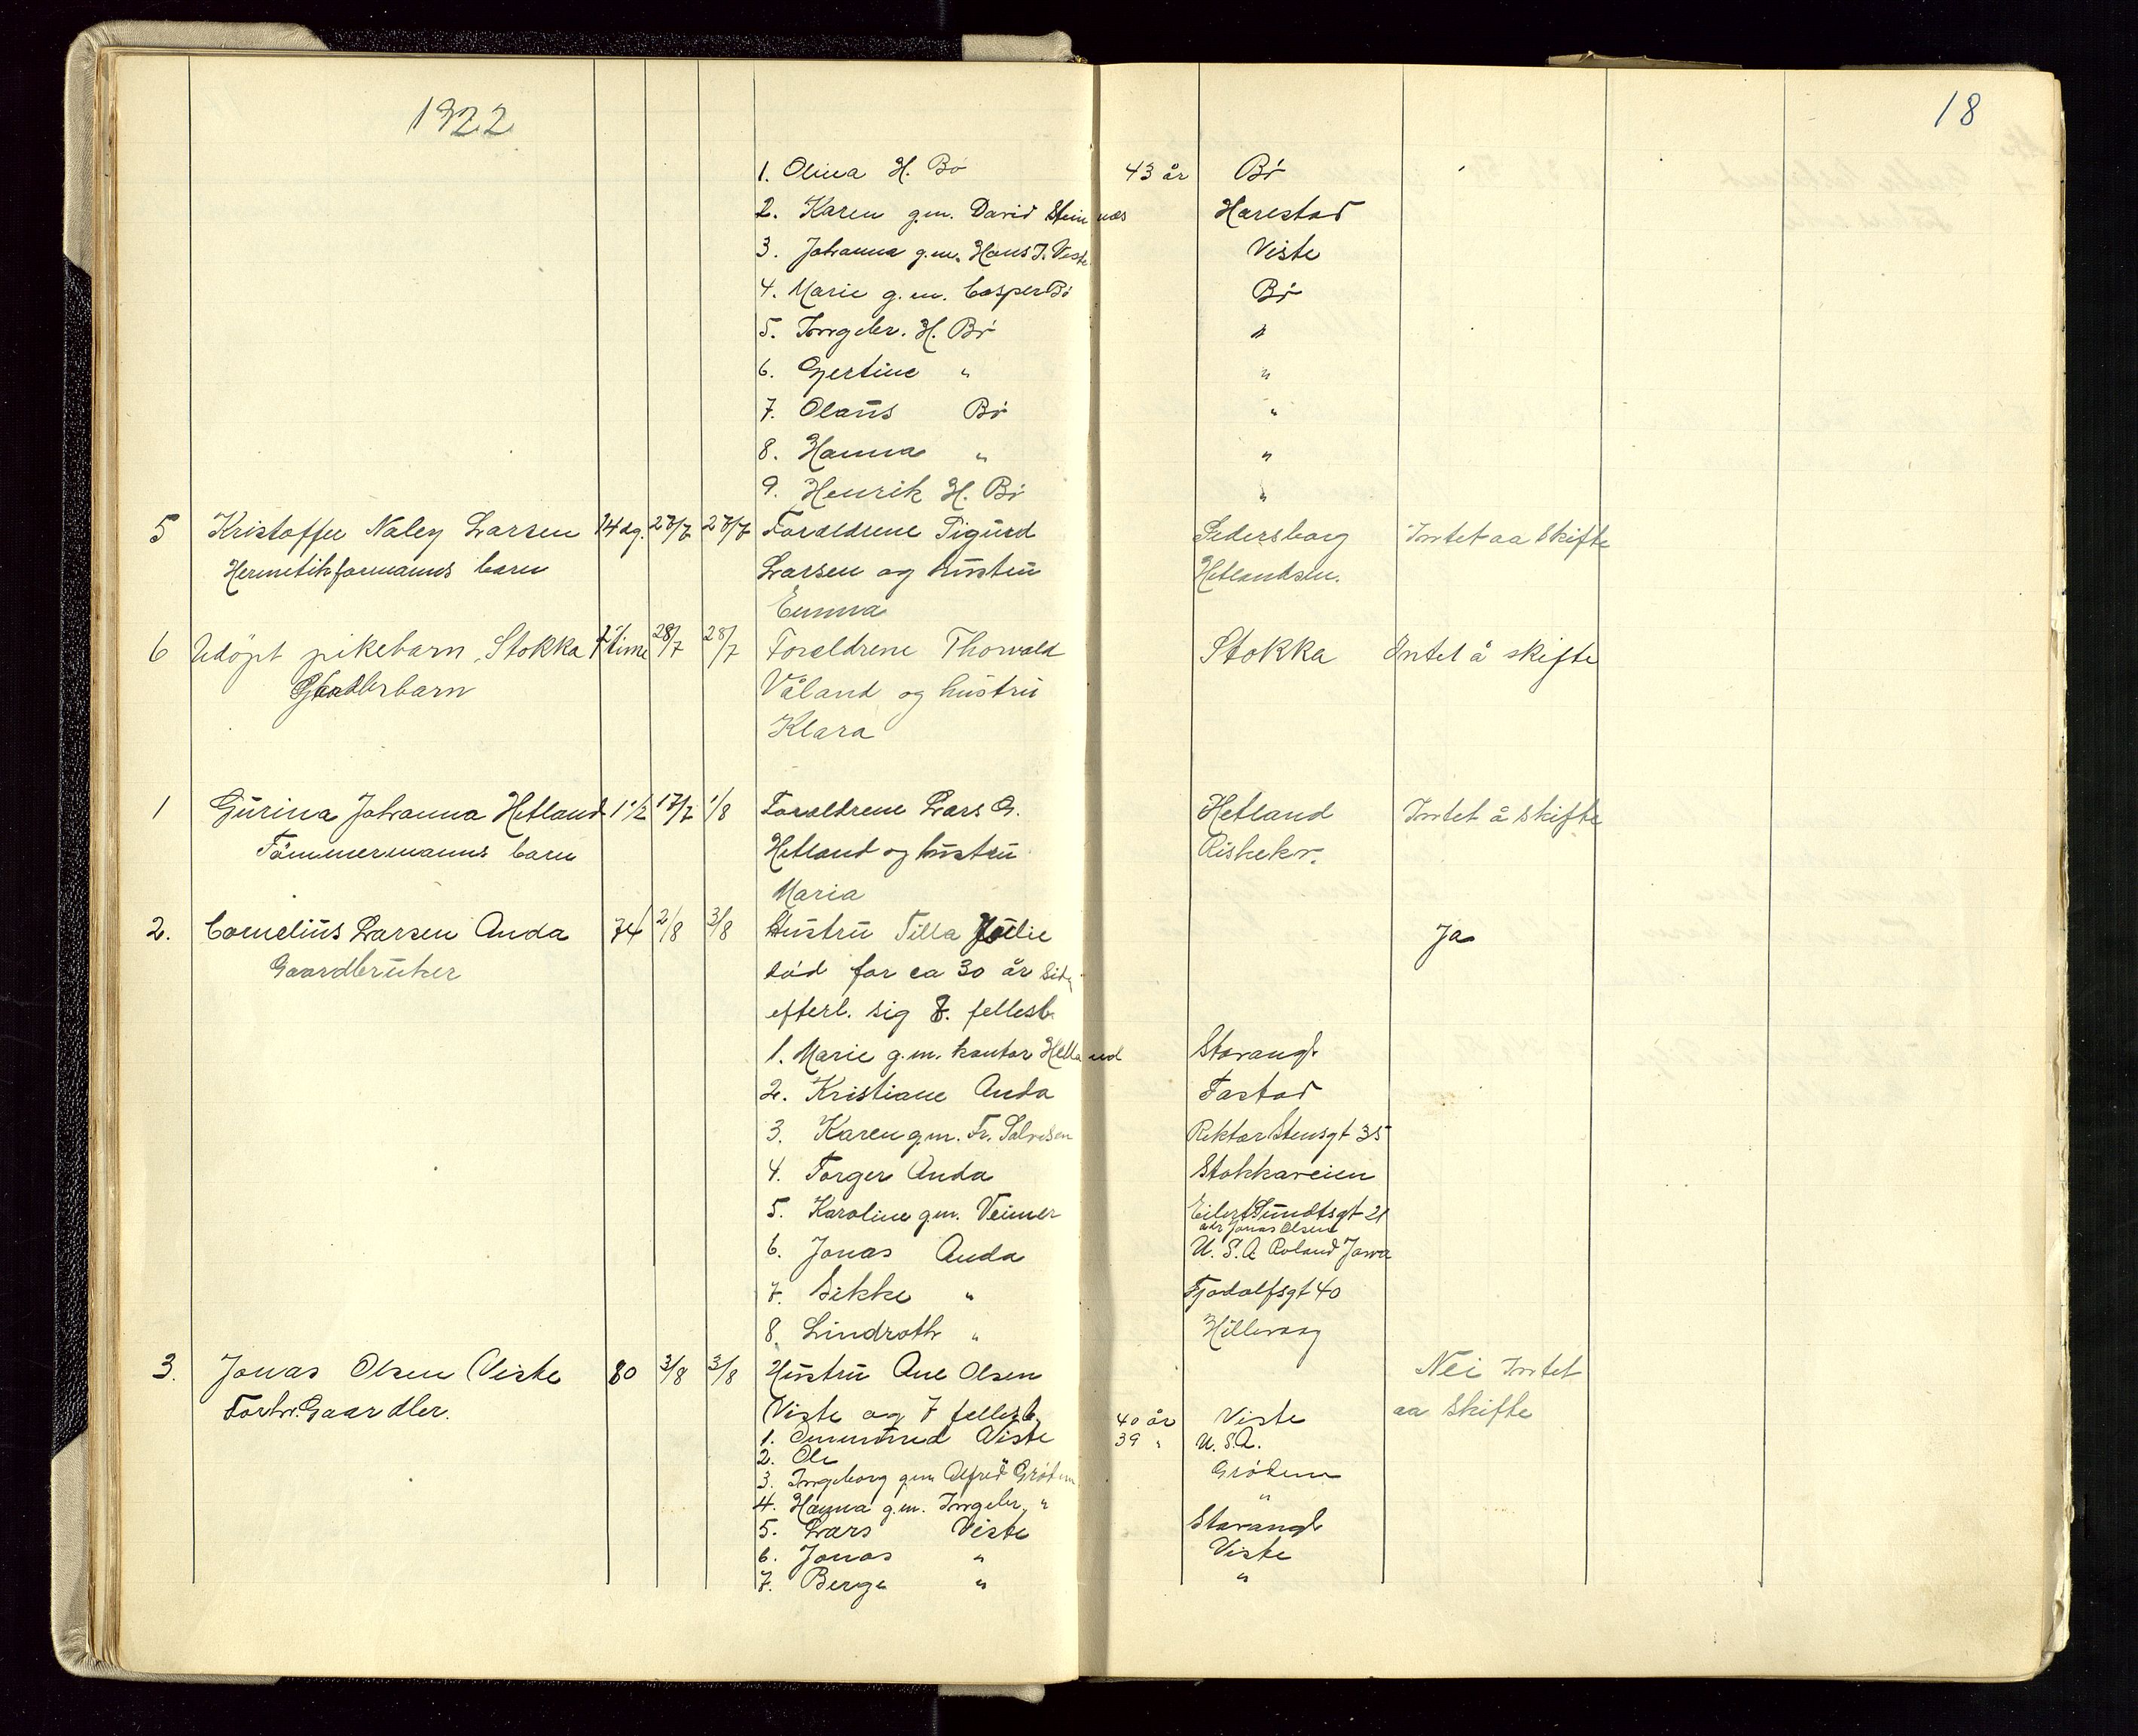 1922
18
1. Olina H. Bø 43 år Bø
2. Karen g.m. David Steinnes Harestad
3. Johanna g.m. Hans J. Viste Viste
4. Marie g.m. Casper Bø Bø
5. Ingebr. H. Bø "
6. Gjertine " "
7. Olaus Bø "
8. Hanna " "
9. Henrik H. Bø "
5 Kristoffer Larsen 14 dg. 27/7 27/7 Foreldrene Sigurd Intet aa skifte
Hermetikformanns barn Larsen og hustru Hetlandsm.
Emma
6 Udöpt pikebarn, Stokka time 28/7 28/7 Foreldrene Thorvald Stokka Intet å skifte
Våland og hustru
Klara
1 Gurina Johanna Hetland 1 1/2 17/7 1/8 Foreldrene Lars G. Hetland Intet å skifte
Tømmermanns barn Hetland og hustru Riskekv.
Maria
2. Cornelius Larsen Anda 74 2/8 3/8 Hustru Tilla Julie Ja
Gaardbruker död for ca 30 år siden
efterl. sig 8. fellesb.
1. Marie g.m. kantor Helland Stavangr
2. Kristiane Anda Tastad
3. Karen g.m. Fr. Salvesen Rektor Stensgt 35
4. Torger Anda Stokkaveien
5. Karoline gm. Veimer Eilert Sundtsgt 21
adr Jonas Olsen
6. Jonas Anda U.S.A. Roland Jowa
7. Sikke " Tjodolfsgt 40
8. Lindroth " Hillevaag
3. Jonas Olsen Viste 80 3/8 3/8 Hustru Ane Olsen Nei Intet
Forhv. Gaardbr. Viste og 7 fellesb. aa skifte
1. Viste 40 år Viste
2. Ole 39 " U.S.A.
3. Ingeborg gm Alfred Grödem Grödem
4. Hanna g.m. Ingebr. " "
5. Lars Viste Stavangr
6. Jonas " Viste
7. Berge " "